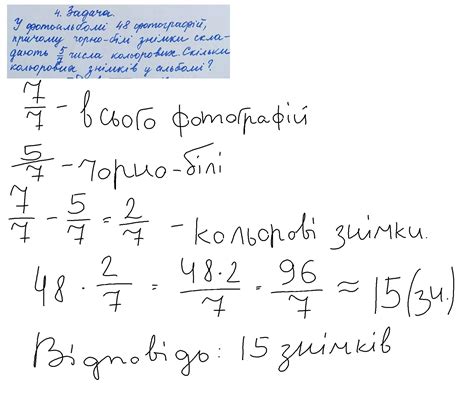 4. Задача.
У фотоальбомі 48 фотографій,
причому чорно-білі знімки скла-
дають 5/7 числа кольорових. Скільки
кольорових знімків у альбомі?
7/7 - всього фотографій
5/7 - чорно-білі
7/7 - 5/7 = 2/7 - кольорові знімки.
48 · 2/7 = 48·2/7 = 96/7 ≈ 15 (зн.)
Відповідь: 15 знімків